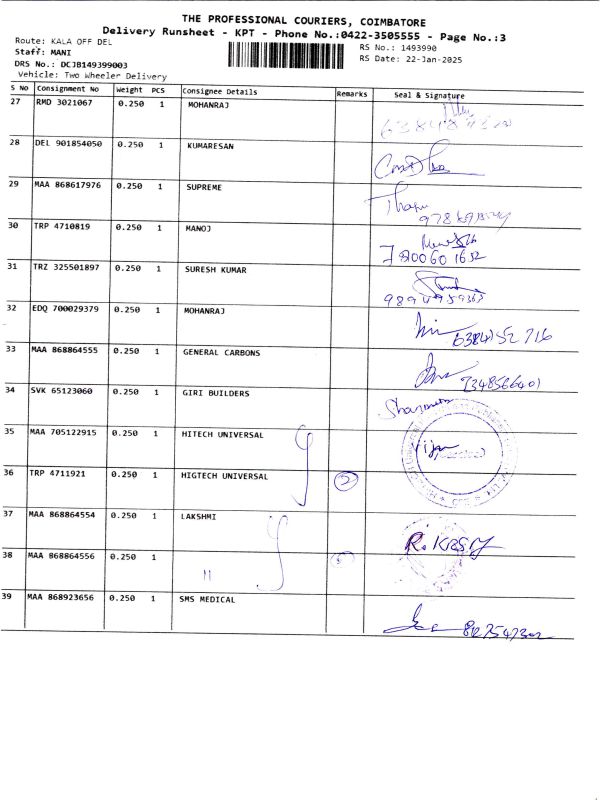 THE PROFESSIONAL COURIERS, COIMBATORE
Delivery Runsheet - KPT - Phone No.:0422-3505555 - Page No.:3
Route: KALA OFF DEL
RS No.: 1493990
Staff: MANI
RS Date: 22-Jan-2025
DRS No.: DCJB149399003
Vehicle: Two Wheeler Delivery
S No Consignment No Weight PCS Consignee Details Remarks Seal & Signature
27 RMD 3021067 0.250 1 MOHANRAJ
28 DEL 901854050 0.250 1 KUMARESAN
29 MAA 868617976 0.250 1 SUPREME
30 TRP 4710819 0.250 1 MANOJ
31 TRZ 325501897 0.250 1 SURESH KUMAR
32 EDQ 700029379 0.250 1 MOHANRAJ
33 MAA 868864555 0.250 1 GENERAL CARBONS
34 SVK 65123060 0.250 1 GIRI BUILDERS
35 MAA 705122915 0.250 1 HITECH UNIVERSAL
36 TRP 4711921 0.250 1 HIGTECH UNIVERSAL 2
37 MAA 868864554 0.250 1 LAKSHMI
38 MAA 868864556 0.250 1 "
39 MAA 868923656 0.250 1 SMS MEDICAL